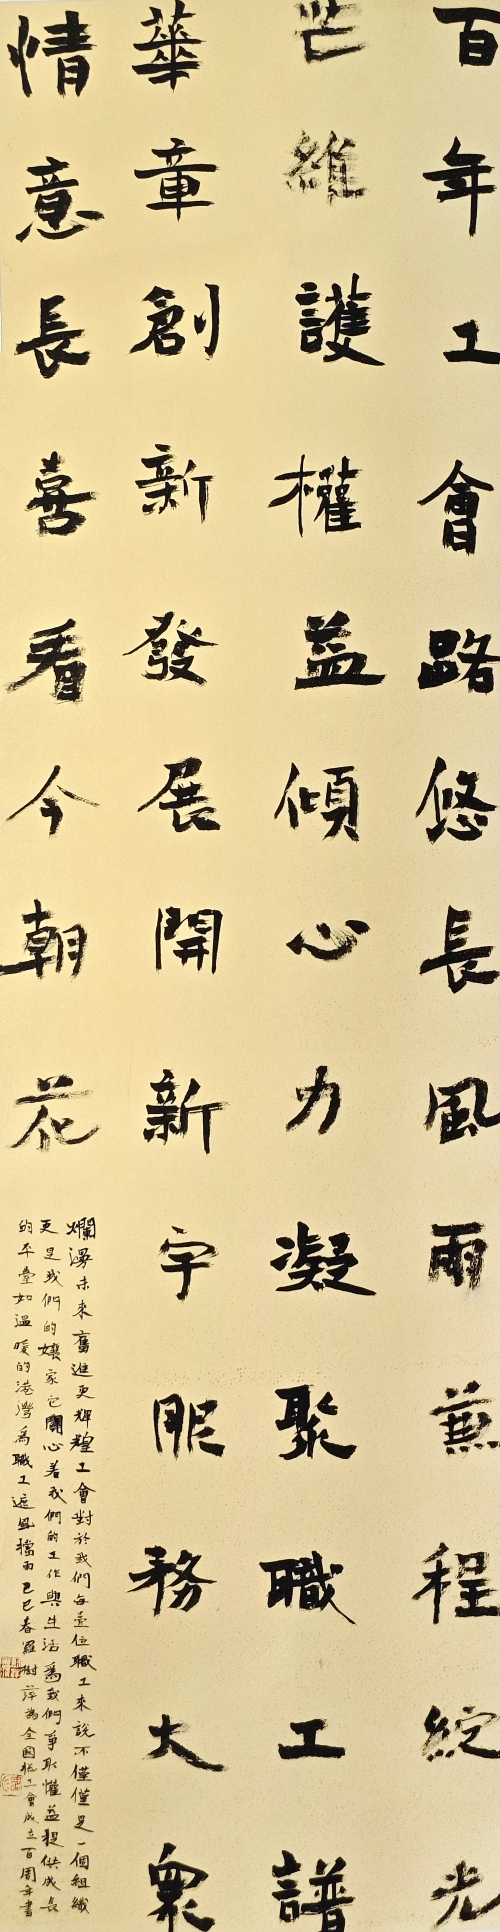 百年工會路悠長風雨兼程綻光
芒維護權益傾心力凝聚職工譜
華章創新發展開新宇服務大衆
情意長喜看今朝花
爛漫未來奮進更輝煌工會對於我們每壹位職工來說不僅僅是一個組織
更是我們的孃家它關心着我們的工作與生活爲我們爭取權益提供成長
的平臺如溫暖的港灣爲職工遮風擋雨乙巳春羅樹萍為全國總工會成立百周年書